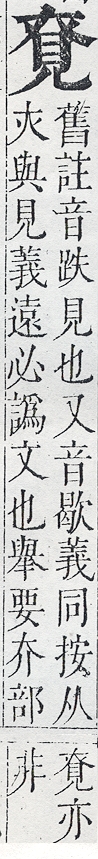 舊註音跌見也又音歇義同按从
與見義遠必譌文也舉要夰部
亦
非